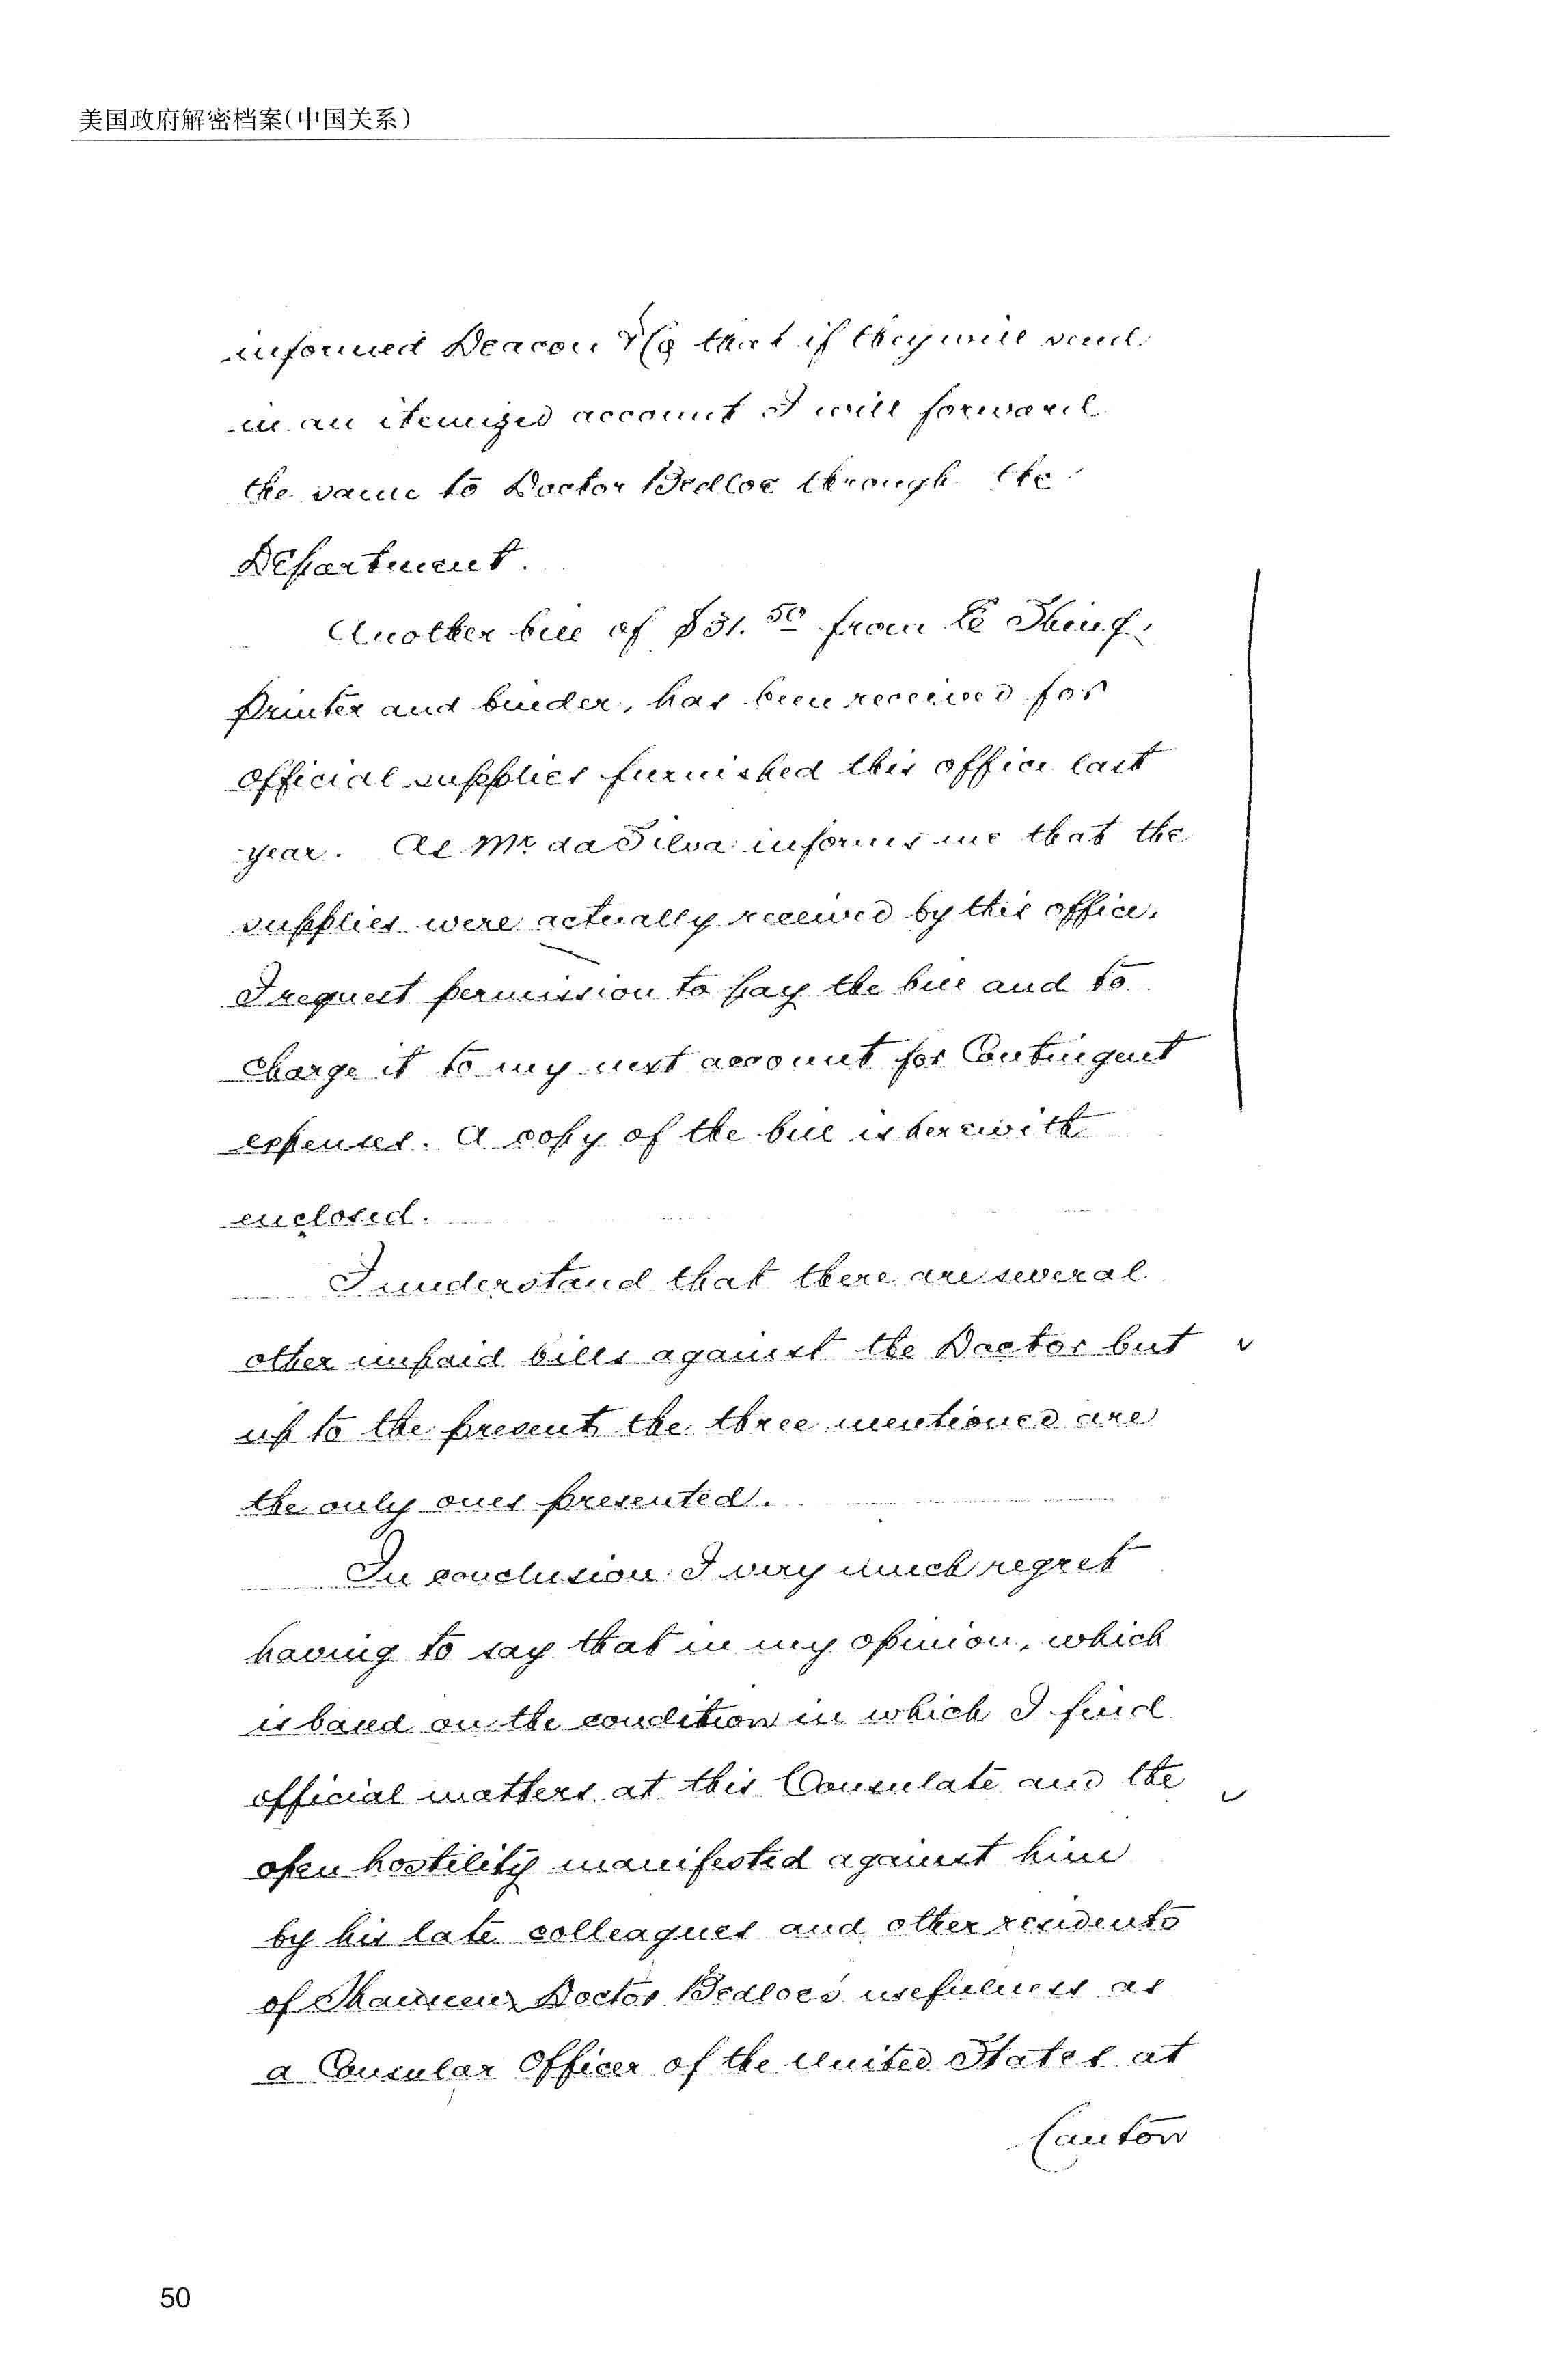 美国政府解密档案(中国关系)
informed Deacon & Co that if they will send
in an itemized account I will forward
the same to Doctor Bedloe through the
Department.
Another bill of $31.50 from
Printer and binder, has been received for
official supplies furnished this office last
year. As Mr da Silva informs me that the
supplies were actually received by this office,
I request permission to pay the bill and to
charge it to my next account for Contingent
expenses. A copy of the bill is herewith
enclosed.
I understand that there are several
other unpaid bills against the Doctor but
up to the present the three mentioned are
the only ones presented.
In conclusion I very much regret
having to say that in my opinion, which
is based on the condition in which I find
official matters at this Consulate and the
open hostility manifested against him
by his late colleagues and other residents
of Shameen, Doctor Bedloe's usefulness as
a Consular Officer of the United States at
Canton
50